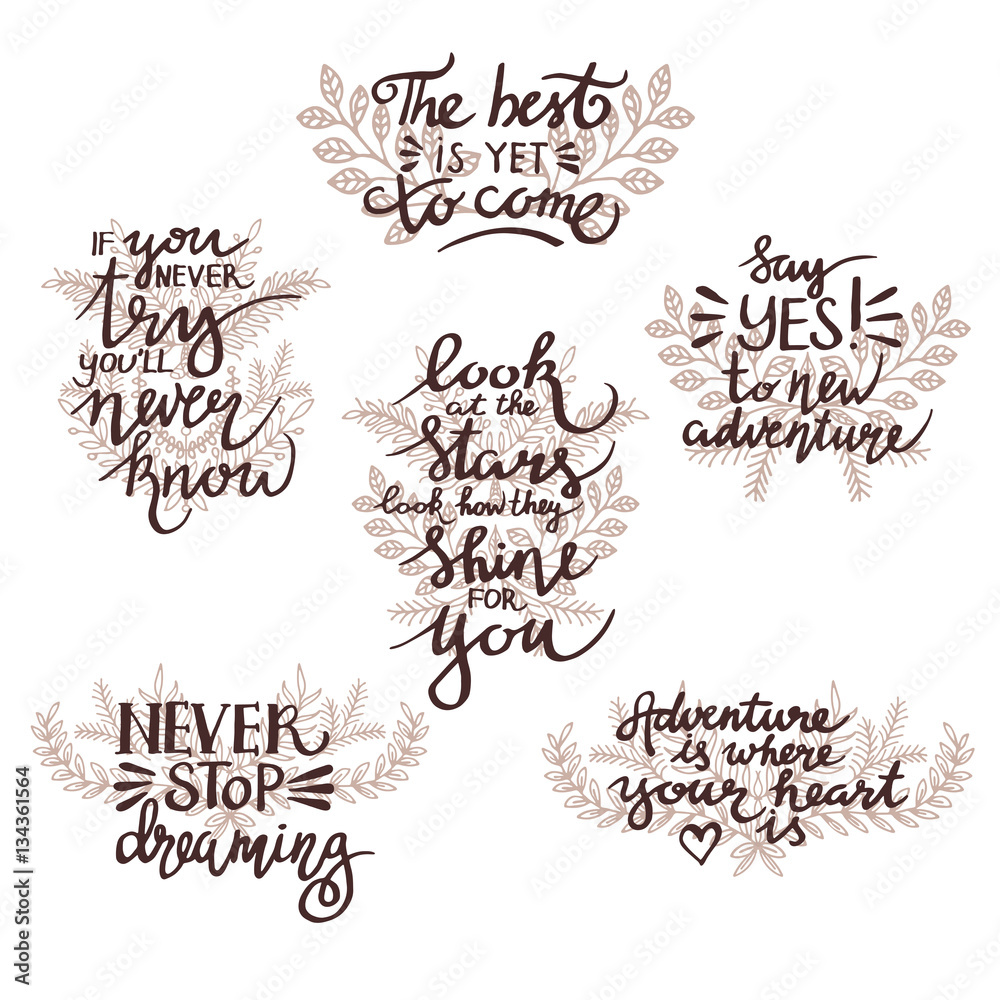 The best
is yet
to come
IF you
NEVER
try
YOU'LL
never
know
Say
YES!
to new
adventure
look
at the
Stars
look how they
Shine
FOR
you
NEVER
STOP
dreaming
Adventure
is where
your heart
is
Adobe Stock | #134361564